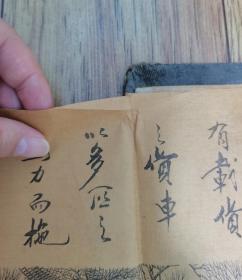 有載貨
之貨車
以多匹之
力而拖